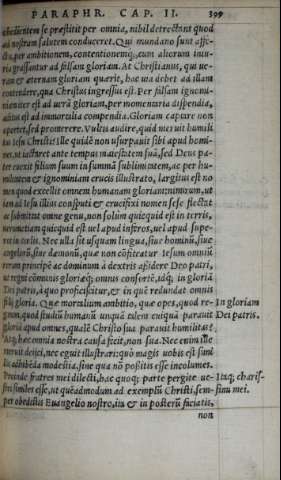 PARAPHR. CAP. II. 309
obedientem se præstitit per omnia, nihil detrectans quod
ad nostram salutem conduceret. Qui mundano sunt affe-
ctu, per ambitionem, contentionemq́;, cum aliorum iniu-
ria grassantur ad falsam gloriam. At Christianus, qui ue-
ram & æternam gloriam quærit, hac uia debet ad illam
contendere, qua Christus ingressus est. Per falsam ignomi-
niam iter est ad uerã gloriam, per momentaria dispendia,
aditus est ad immortalia compendia. Gloriam captare non
oportet, sed promerere. Vultis audire, quid meruit humili
tas Iesu Christi? Ille quidẽ non usurpauit sibi apud homi-
nes, ut iactaret ante tempus maiestatem suã, sed Deus pa-
ter euexit filium suum in summã sublimitatem, ac per hu-
militatem & ignominiam crucis illustrato, largitus est no
men quod excellit omnem humanam gloriam: nimirum, ut
iam ad Iesu illius consputi & crucifixi nomen sese flectat
ac submittat omne genu, non solum quicquid est in terris,
uerumetiam quicquid est uel apud inferos, uel apud supe-
ros in cœlis. Nec ulla sit usquam lingua, siue hominũ, siue
angelorũ, siue dæmonũ, quæ non cõfiteatur Iesum omniũ
rerum principẽ ac dominum à dextris assidere Deo patri,
ut regni cõmunis gloriæq́; omnis consortẽ, idq́; in gloriã
Dei patris, à quo proficiscitur, & in quẽ redundat omnis
filij gloria. Quæ mortalium ambitio, quæ opes, quod re- In gloriam
gnum, quod studiũ humanũ unquã talem cuiquã parauit Dei patris.
gloriã apud omnes, qualẽ Christo sua parauit humilitas?
Atq́; hæc omnia nostra causa fecit, non sua. Nec enim ille
meruit deijci, nec eguit illustrari: quò magis uobis est simi
lis adhibẽda modestia, sine qua nõ possitis esse incolumes.
Proinde fratres mei dilecti, hac quoq; parte pergite ue- Itaq́; charis-
stri similes esse, ut quẽadmodum ad exemplũ Christi, sem- simi mei.
per obedistis Euangelio nostro, ita & in posterũ faciatis,
non